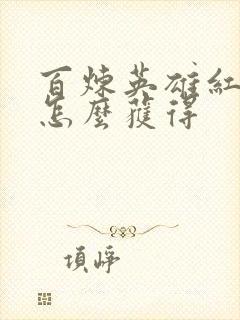 百煉英雄紅
怎麼獲得
項崢